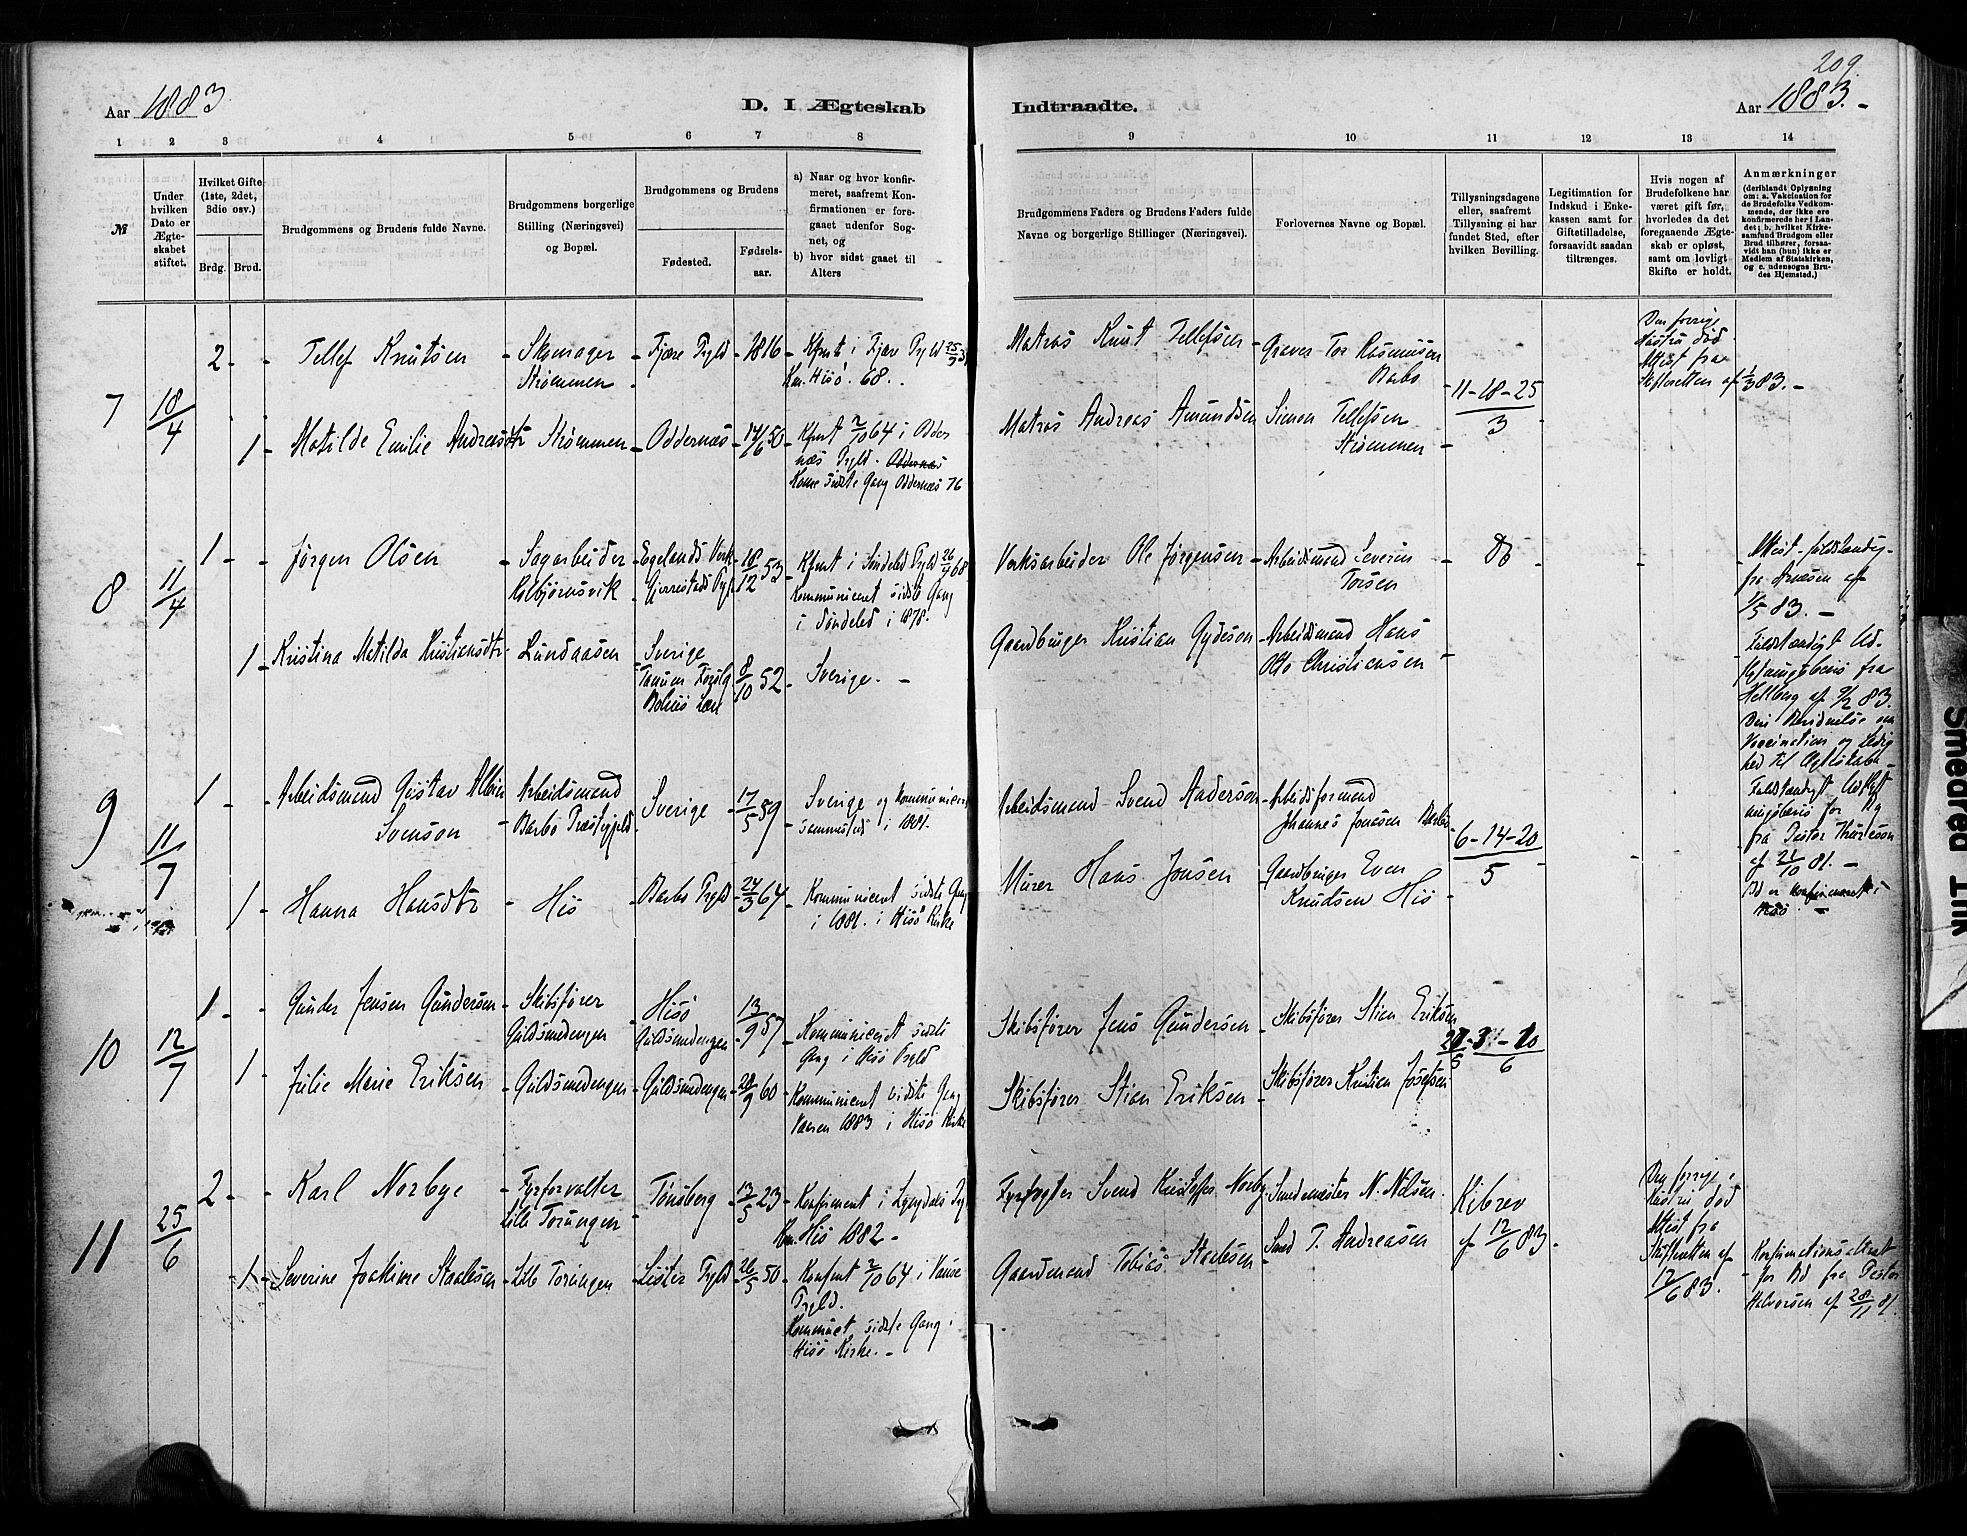 209.
Aar 1883.
D. I Ægteskab
Indtraadte.
Aar 1883.-
1 2 3 4 5 6 7 8 9 10 11 12 13 14
№
Under hvilken Dato er Ægteskabet stiftet.
Hvilket Gifte (1ste, 2det, 3die osv.)
Brdg. Brud.
Brudgommens og Brudens fulde Navne.
Brudgommens borgerlige Stilling (Næringsvei) og Bopæl.
Brudgommens og Brudens
Fødested.
Fødselsaar.
a) Naar og hvor konfirmeret, saafremt Konfirmationen er foregaaet udenfor Sognet, og
b) hvor sidst gaaet til Alters
Brudgommens Faders og Brudens Faders fulde Navne og borgerlige Stillinger (Næringsvei).
Forlovernes Navne og Bopæl.
Tillysningsdagene eller, saafremt Tillysning ei har fundet Sted, efter hvilken Bevilling.
Legitimation for Indskud i Enkekassen samt for Giftetilladelse, forsaavidt saadan tiltrænges.
Hvis nogen af Brudefolkene har været gift før, hvorledes da det foregaaende Ægteskab er opløst, samt om lovligt Skifte er holdt.
Anmærkninger
(deriblandt Oplysning om: a. Vakcination for de Brudefolks Vedkommende, der ikke ere konfirmerede her i Landet; b. hvilket Kirkesamfund Brudgom eller Brud tilhører, forsaavidt han (hun) ikke er Medlem af Statskirken, og c. udensogns Brudes Hjemsted.)
7
10/4
2 -
Tellef Knutsen
Skomager
Strømmen
Fjære Prgld
1816
Kfmt i Fjære Prgld 25/9 31
Km. Hisö. 68.
Matros Knut Tellefsen
Graver Tor Rasmussen
Barbo
11-18-25
3
Den forrige
Hustru död
Attest fra
Skifteretten af 1/3 83.-
1
Matilde Emilie Andreasdtr
Strömmen
Oddernæs
17/6 50
Kfmt 2/10 64 i Odder
næs Prgld. Oddernæs
Komm sidste Gang Oddernæs 76
Matros Andreas Amundsen
Simon Tellefsen
Strömmen
8
11/4
1 -
Jörgen Olsen
Sagarbeider
Kolbjörnsvik
Egelands Verk
Gjerrestads Pgl
18/12 53
Kfmt i Söndeled Prgld 26/4 68
Kommuniceret sidste Gang
i Söndeled i 1878.
Verksarbeider Ole Jörgensen
Arbeidsmand Severin
Torsen
Attest
af
1/5 83.-
1
Kristina Matilda Kristiansdtr
Lundaasen
Sverige
Tanum
Bohus Læn
8/10 52
Sverige. -
Gaardbruger Kristian
Arbeidsmand Hans
Otto Christiansen
Hellberg af 9/2 83.
Vaccination og Ledig
hed til Ægteskab -
9
11/7
1 -
Arbeidsmand Gustav Albin
Svenson
Arbeidsmand
Barbo Præstegjeld
Sverige
17/5 59
Sverige og kommuniceret
sammesteds i 1881.
Arbeidsmand Svend Anderson
Arbeidsformand
Johannes Jonassen Barbo
6-14-20
5
fra Pastor Thuresson
af 21/10 81. -
Bd er konfirmeret i
Hisö -
1
Hanna Hansdtr
Hisö
Barbo Prgld
24/3 64
Kommuniceret sidste Gang
i 1881. i Hisö Kirke
Murer Hans Jonsen
Gaardbruger Even
Knudsen Hisö
10
12/7
1 -
Gunder Jensen Gundersen
Skibsfører
Guldsmedengen
Hisö
Guldsmedengen
13/9 57
Kommuniceret sidste
Gang i Hisö Prgld
Skibsfører Jens Gundersen
Skibsfører Stian Eriksen
1
Julie Marie Eriksen
Guldsmedengen
Guldsmedengen
60
Kommuniceret sidste Gang
Vaaren 1883 i Hisö Kirke
Skibsfører Stian Eriksen
Skibsfører Kristian Josefsen
11
25/6
2 -
Karl Norbye
Fyrforvalter
Lille Torungen
Tönsberg
13/5 23
Konfirmeret i Lyngdals Pgl
Km. Hisö 1882 -
Fyrfogter Svend Kristoffer Norby
Smedmester N. Nilsen.
Kibrev
af 12/6 83
Den forrige
Hustru död
Attest fra
Skifteretten af
12/6 83.
1
Severine Joakime Staalesen
Lille Torungen
Lister Prgld
26/5 50
Konfmt 2/10 64 i Vanse
Prgld.
Kommucet sidste Gang i
Hisö Kirke. -
Gaardmand Tobias Staalesen
Smed T. Andreasen
Konfirmationsattest
for Bd fra Pastor
Halvorsen af 28/11 81.
Smeared Ink